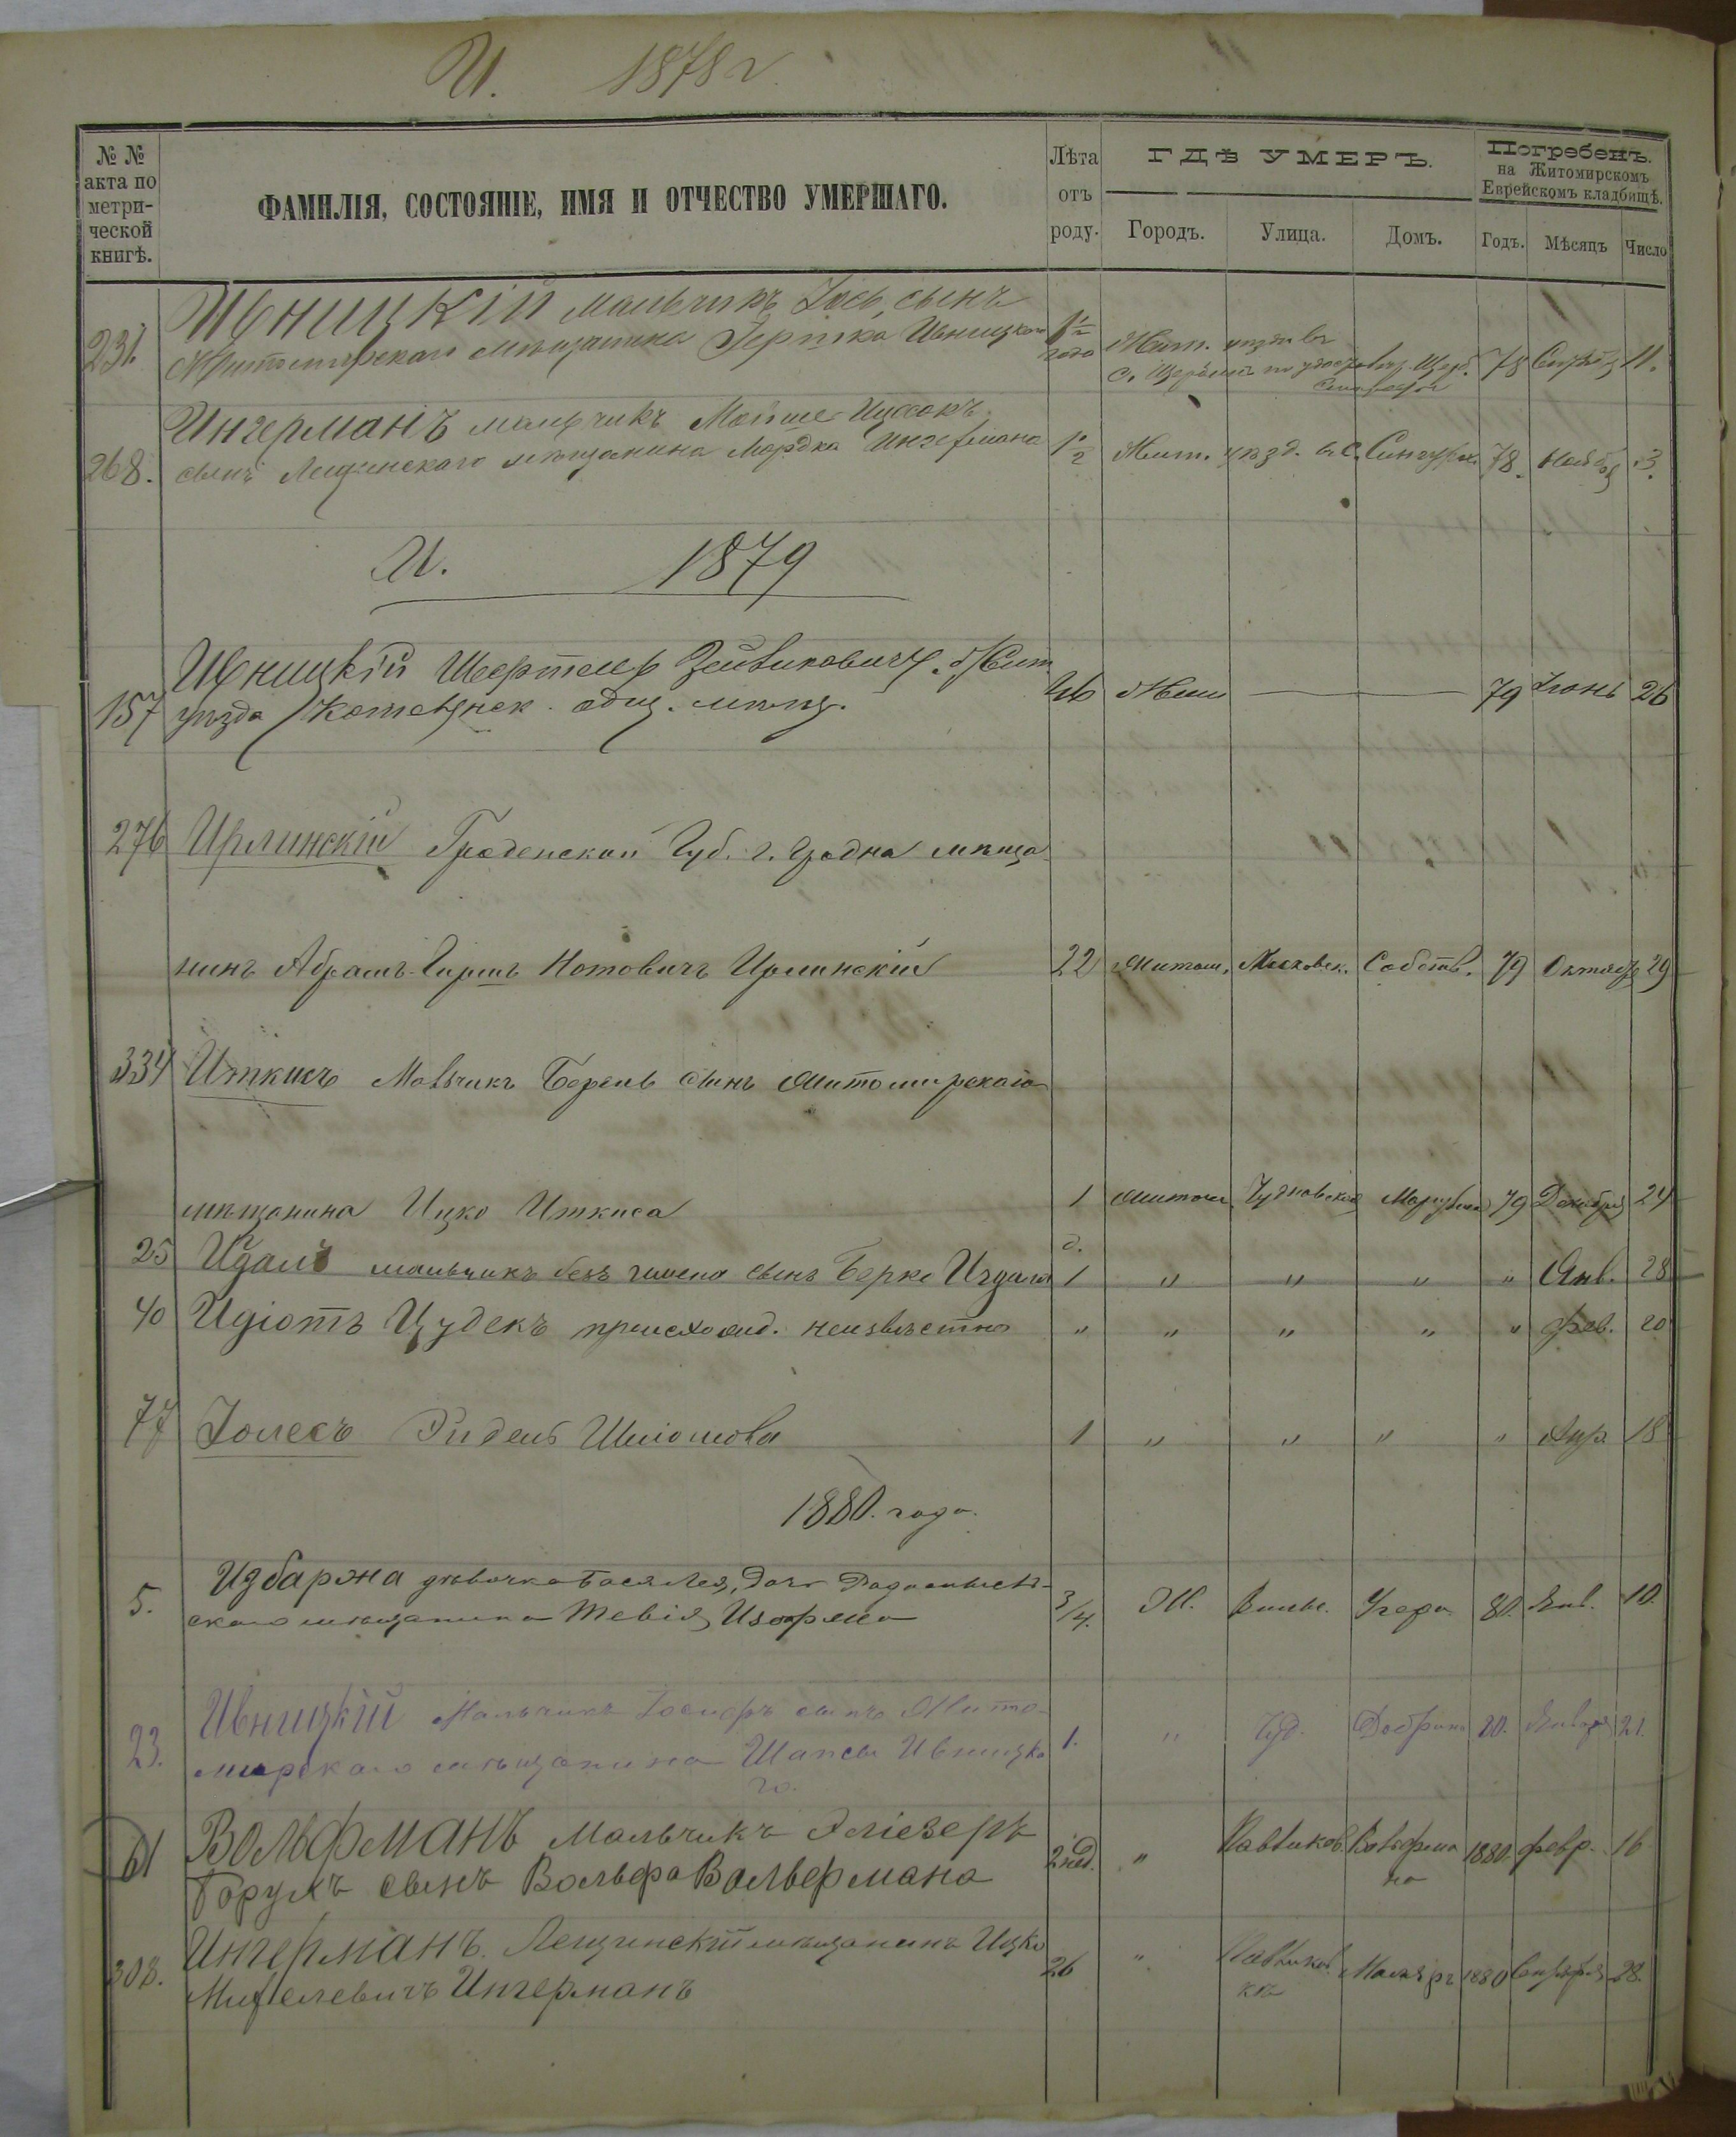 И. 1878 г.
№ № акта по метрической книгѣ.
ФАМИЛІЯ, СОСТОЯНІЕ, ИМЯ И ОТЧЕСТВО УМЕРШАГО.
Лѣта отъ роду.
ГДѢ УМЕРЪ.
Городъ. Улица. Домъ.
Погребенъ.
на Житомирскомъ
Еврейскомъ кладбищѣ.
Годъ. Мѣсяцъ Число
Ивницкій мальчикъ Іось, сынъ
231. Житомирскаго мѣщанина Гершка Ивницкаго 1/2 года Жит. уѣзда въ 78 11.
Ингерманъ мальчикъ Мойше Ицхокъ
268. сынъ Лещинскаго мѣщанина Мордка Ингермана 1/2 Жит. уѣзд. въ с. Сингур. 78. Ноября 3.
И. 1879
Ивницкій Зейвиковичъ. Жит.
157 уѣзда Котельнск. общ. мѣщ. Жит 79 Іюнь 26
276 Ирлинскій Гроденской Губ. г. Гродна мѣща
нинъ Абрамъ-Гиршъ Нотовичъ Ирлинскій 22 Житом. Московск. Собств. 79 Октября 29
334 Иткисъ Мальчикъ Берель сынъ Житомирскаго
мѣщанина Ицко Иткиса 1 Житом. Чудновская 79 Декабря 24
25 мальчикъ безъ имени сынъ Берко д. 1 " " " " Янв. 28
40 Идіотъ Цудекъ происхожд. неизвѣстно " " " " " Фев. 20
77 Іолесъ Шліомова 1 " " " " Апр 18
1880. года.
5. дѣвочка Бася Лея, дочь
скаго мѣщанина Тевія 3/4. Ж. Вильс. 80. Янв. 10.
Ивницкій Мальчикъ Іосифъ сынъ Жито-
23. мирскаго мѣщанина Шапсы Ивницка 1. " Чуд. 80. Января 21.
го.
Вольфманъ Мальчикъ Эліезеръ
61 Борухъ сынъ Вольфа Вольфермана 2 нед. " 1880. февр. 16
Ингерманъ. Лещинскій мѣщанинъ Ицко
308. Ингерманъ 26 " Маляръ 1880 28.